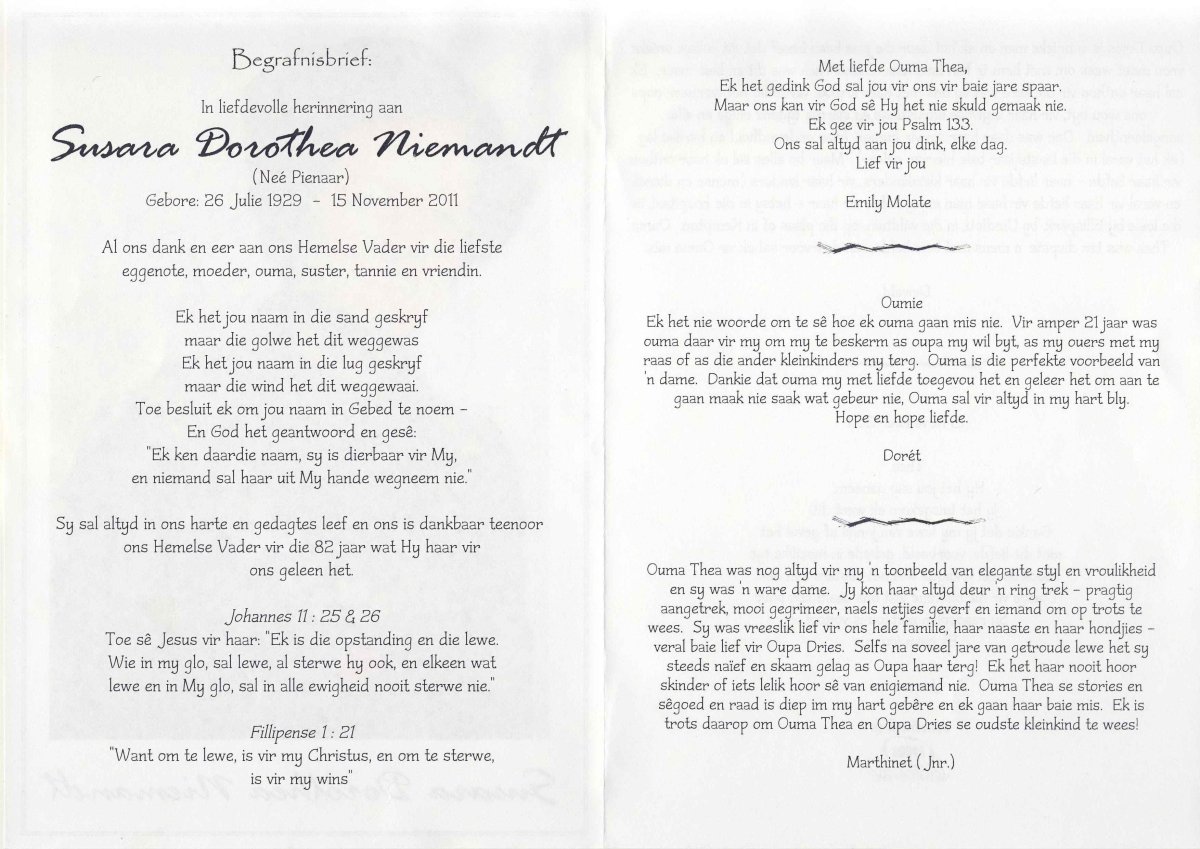 Begrafnisbrief:
In liefdevolle herinnering aan
Susara Dorothea Niemandt
(Neé Pienaar)
Gebore: 26 Julie 1929 - 15 November 2011
Al ons dank en eer aan ons Hemelse Vader vir die liefste
eggenote, moeder, ouma, suster, tannie en vriendin.
Ek het jou naam in die sand geskryf
maar die golwe het dit weggewas
Ek het jou naam in die lug geskryf
maar die wind het dit weggewaai.
Toe besluit ek om jou naam in Gebed te noem –
En God het geantwoord en gesê:
"Ek ken daardie naam, sy is dierbaar vir My,
en niemand sal haar uit My hande wegneem nie."
Sy sal altyd in ons harte en gedagtes leef en ons is dankbaar teenoor
ons Hemelse Vader vir die 82 jaar wat Hy haar vir
ons geleen het.
Johannes 11 : 25 & 26
Toe sê Jesus vir haar: "Ek is die opstanding en die lewe.
Wie in my glo, sal lewe, al sterwe hy ook, en elkeen wat
lewe en in My glo, sal in alle ewigheid nooit sterwe nie."
Fillipense 1 : 21
"Want om te lewe, is vir my Christus, en om te sterwe,
is vir my wins"
Met liefde Ouma Thea,
Ek het gedink God sal jou vir ons vir baie jare spaar.
Maar ons kan vir God sê Hy het nie skuld gemaak nie.
Ek gee vir jou Psalm 133.
Ons sal altyd aan jou dink, elke dag.
Lief vir jou
Emily Molate
Oumie
Ek het nie woorde om te sê hoe ek ouma gaan mis nie. Vir amper 21 jaar was
ouma daar vir my om my te beskerm as oupa my wil byt, as my ouers met my
raas of as die ander kleinkinders my terg. Ouma is die perfekte voorbeeld van
'n dame. Dankie dat ouma my met liefde toegevou het en geleer het om aan te
gaan maak nie saak wat gebeur nie, Ouma sal vir altyd in my hart bly.
Hope en hope liefde.
Dorét
Ouma Thea was nog altyd vir my 'n toonbeeld van elegante styl en vroulikheid
en sy was 'n ware dame. Jy kon haar altyd deur 'n ring trek – pragtig
aangetrek, mooi gegrimeer, naels netjies geverf en iemand om op trots te
wees. Sy was vreeslik lief vir ons hele familie, haar naaste en haar hondjies –
veral baie lief vir Oupa Dries. Selfs na soveel jare van getroude lewe het sy
steeds naïef en skaam gelag as Oupa haar terg! Ek het haar nooit hoor
skinder of iets lelik hoor sê van enigiemand nie. Ouma Thea se stories en
sêgoed en raad is diep im my hart gebêre en ek gaan haar baie mis. Ek is
trots daarop om Ouma Thea en Oupa Dries se oudste kleinkind te wees!
Marthinet ( Jnr.)